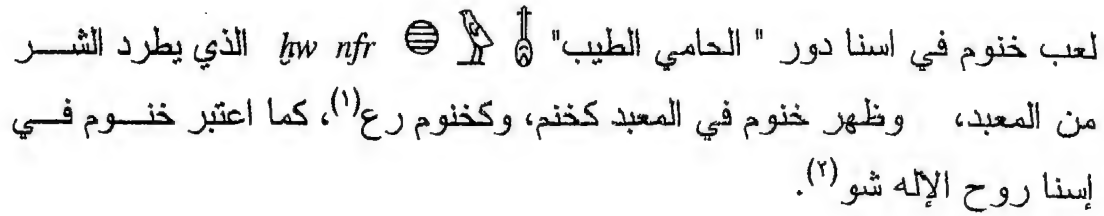 لعب خنوم في اسنا دور " الحامي الطيب" 𓐍𓅱𓄤 ḫw nfr الذي يطرد الشر
من المعبد، وظهر خنوم في المعبد كخنم، وكخنوم رع(١)، كما اعتبر خنوم في
إسنا روح الإله شو(٢).